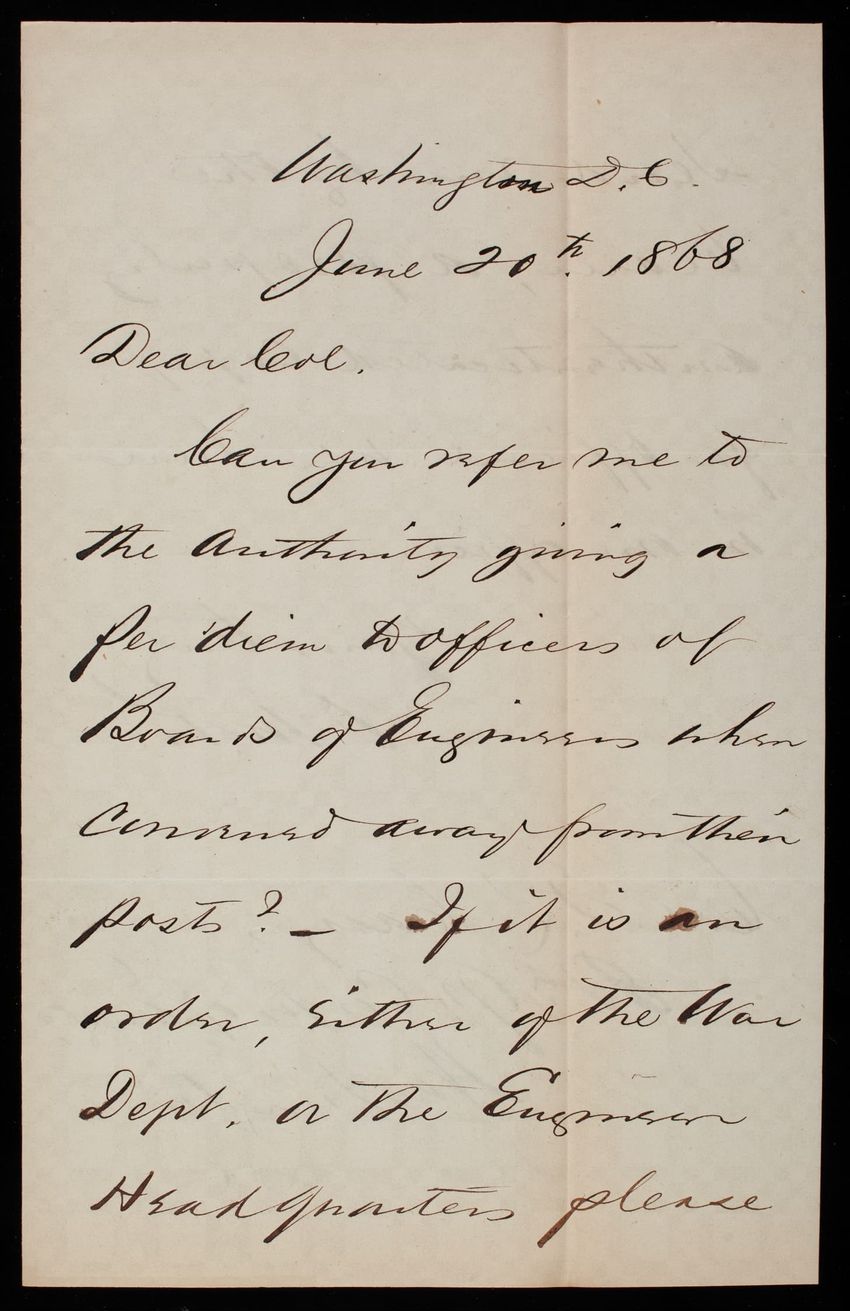 Washington D.C.
June 20th. 1868
Dear Col.
Can you refer me to
the Authority giving a
per diem to officers of
Boards of Engineers when
convened away from their
posts? — If it is an
order, either of the War
Dept. or the Engineer
Headquarters please